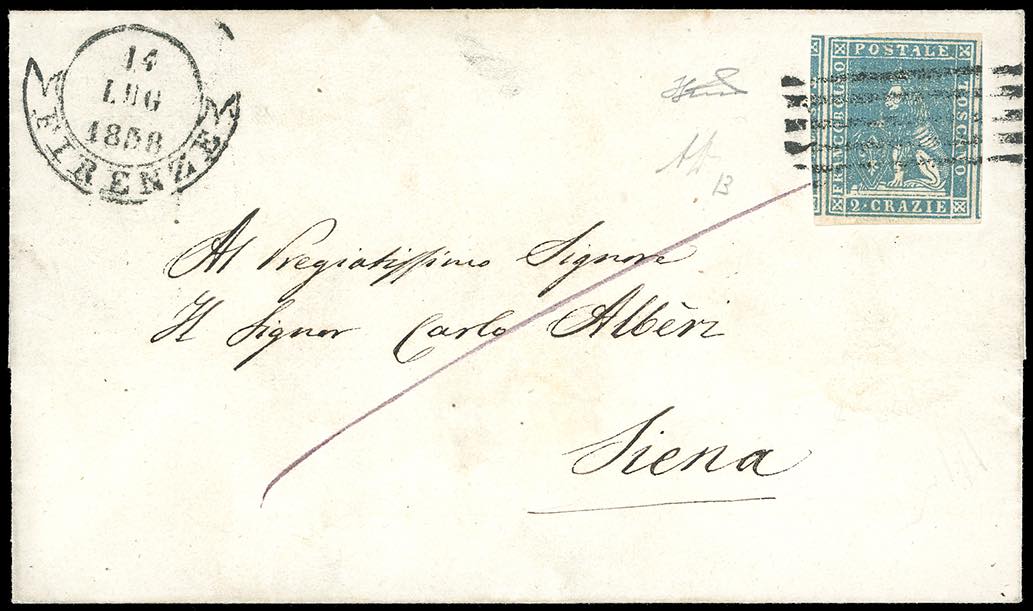 14
LUG
1858
FIRENZE
FRANCOBOLLO
POSTALE
TOSCANO
2·CRAZIE
13
Al Pregiatissimo Signore
Il Signor Carlo Albèri
Siena